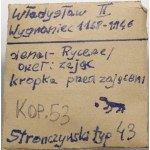 Władysław II
Wygnaniec 1138-1146
denar - Rycerz /
orzeł i zając
kropka przed zającem
KOP. 53
Stronczyński typ 43